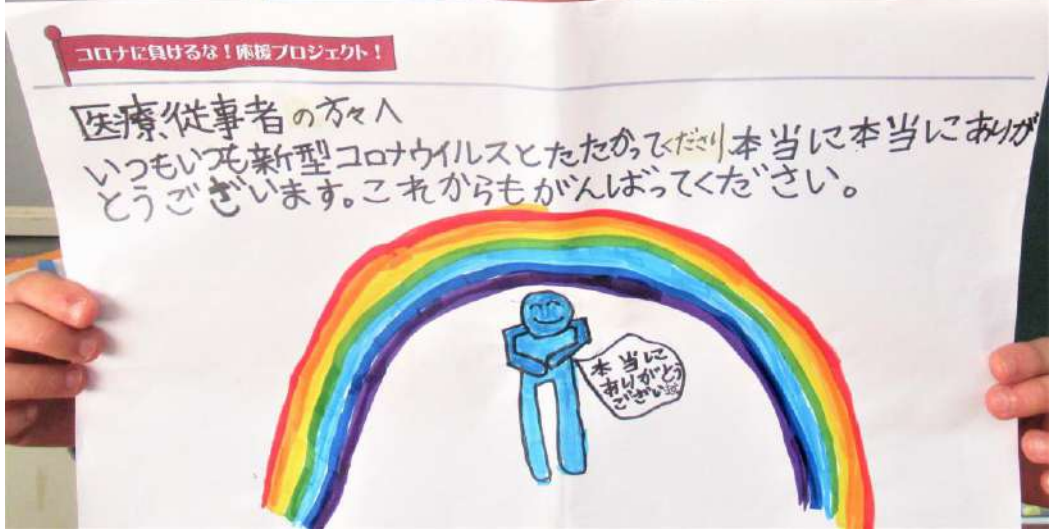 コロナに負けるな！応援プロジェクト！
医療従事者の方々へ
いつもいつも新型コロナウイルスとたたかってくださり本当に本当にありが
とうございます。これからもがんばってください。
本当に
ありがとう
ございます